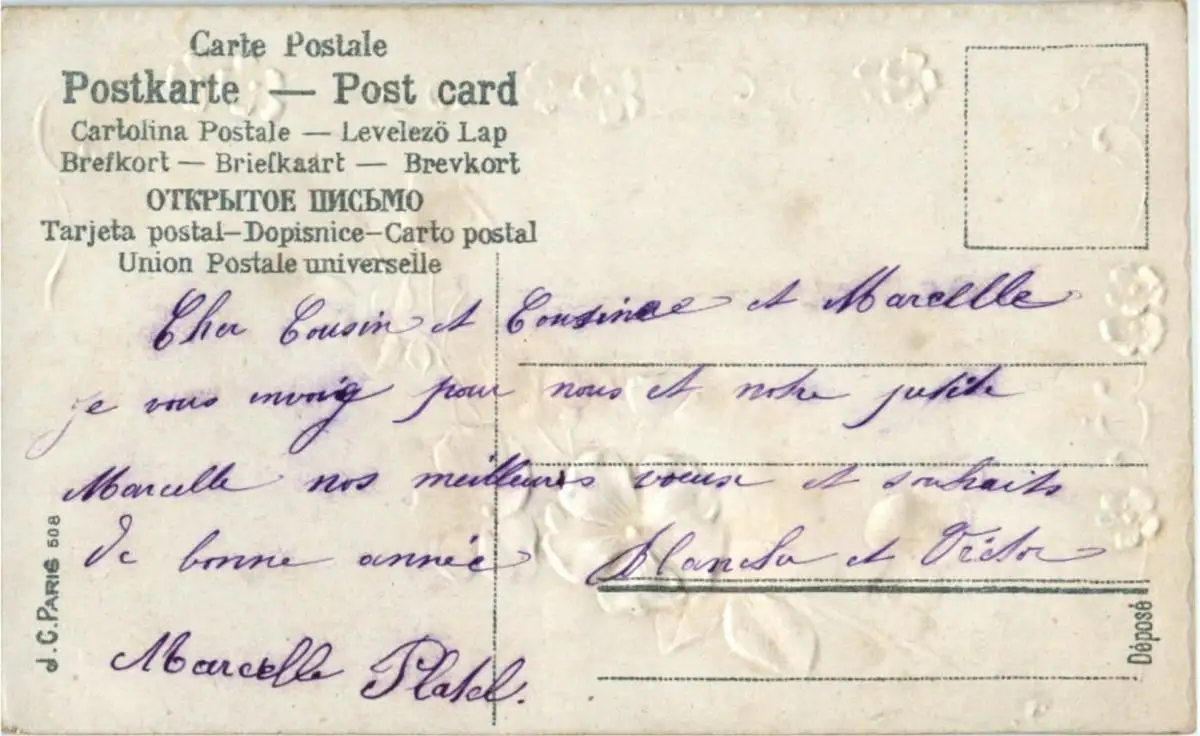 Carte Postale
Postkarte — Post card
Cartolina Postale — Levelező Lap
Brefkort — Briefkaart — Brevkort
ОТКРЫТОЕ ПИСЬМО
Tarjeta postal—Dopisnice—Carto postal
Union Postale universelle
Cher Cousin et Cousine et Marcelle
je vous envoig pour nous et notre petite
Marcelle nos meilleurs voeux et souhaits
de bonne année Blanche et Victor
Marcelle Platel.
J.C. PARIS 508
Déposé